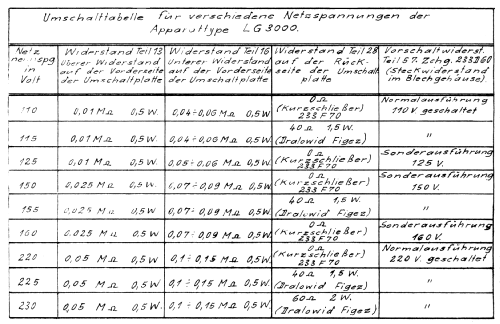 Umschalttabelle für verschiedene Netzspannungen der
Apparattype LG3000.
Netz nennspg in Volt | Widerstand Teil 13 oberer Widerstand auf der Vorderseite der Umschaltplatte | Widerstand Teil 16 unterer Widerstand auf der Vorderseite der Umschaltplatte | Widerstand Teil 28 auf der Rückseite der Umschaltplatte | Vorschaltwiderst. Teil 57. Zchg. 233Z60 (Steckwiderstand im Blechgehäuse)
110 | 0,01 MΩ 0,5 W. | 0,04÷0,06 MΩ 0,5W. | 0Ω (Kurzschließer) 233 F 70 | Normalausführung 110 V geschaltet
115 | 0,01 MΩ 0,5 W. | 0,04÷0,06 MΩ 0,5W. | 40Ω 1,5 W. (Dralowid Figez) | "
125 | 0,01 MΩ 0,5 W. | 0,05÷0,06 MΩ 0,5W. | 0Ω (Kurzschließer) 233 F 70 | Sonderausführung 125 V.
150 | 0,025 MΩ 0,5W. | 0,07÷0,09 MΩ 0,5W. | 0Ω (Kurzschließer) 233 F 70 | Sonderausführung 150 V.
155 | 0,025 MΩ 0,5 W. | 0,07÷0,09 MΩ 0,5W. | 40Ω 1,5 W. (Dralowid Figez) | "
160 | 0,025 MΩ 0,5 W. | 0,07÷0,09 MΩ 0,5W. | 0Ω (Kurzschließer) 233 F 70 | Sonderausführung 160 V.
220 | 0,05 MΩ 0,5 W. | 0,1÷0,15 MΩ 0,5W. | 0Ω (Kurzschließer) 233 F 70 | Normalausführung 220 V. geschaltet
225 | 0,05 MΩ 0,5 W. | 0,1÷0,15 MΩ 0,5 W. | 40Ω 1,5 W. (Dralowid Figez) | "
230 | 0,05 MΩ 0,5 W. | 0,1÷0,15 MΩ 0,5 W. | 60Ω 2 W. (Dralowid Figez) | "